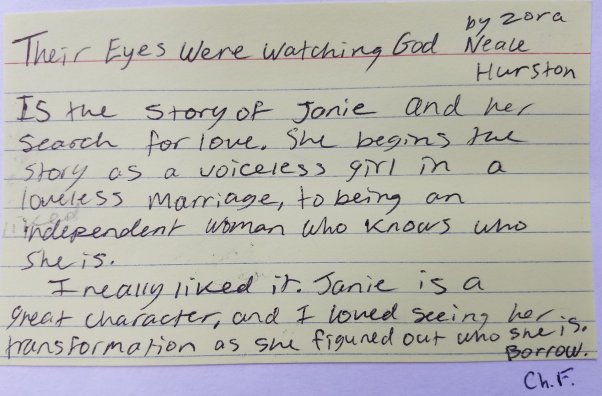 Their Eyes Were Watching God by Zora
Neale
Hurston
Is the story of Janie and her
search for love. She begins the
story as a voiceless girl in a
loveless marriage, to being an
independent woman who knows who
she is.
I really liked it. Janie is a
great character, and I loved seeing her
transformation as she figured out who she is.
Borrow.
Ch.F.